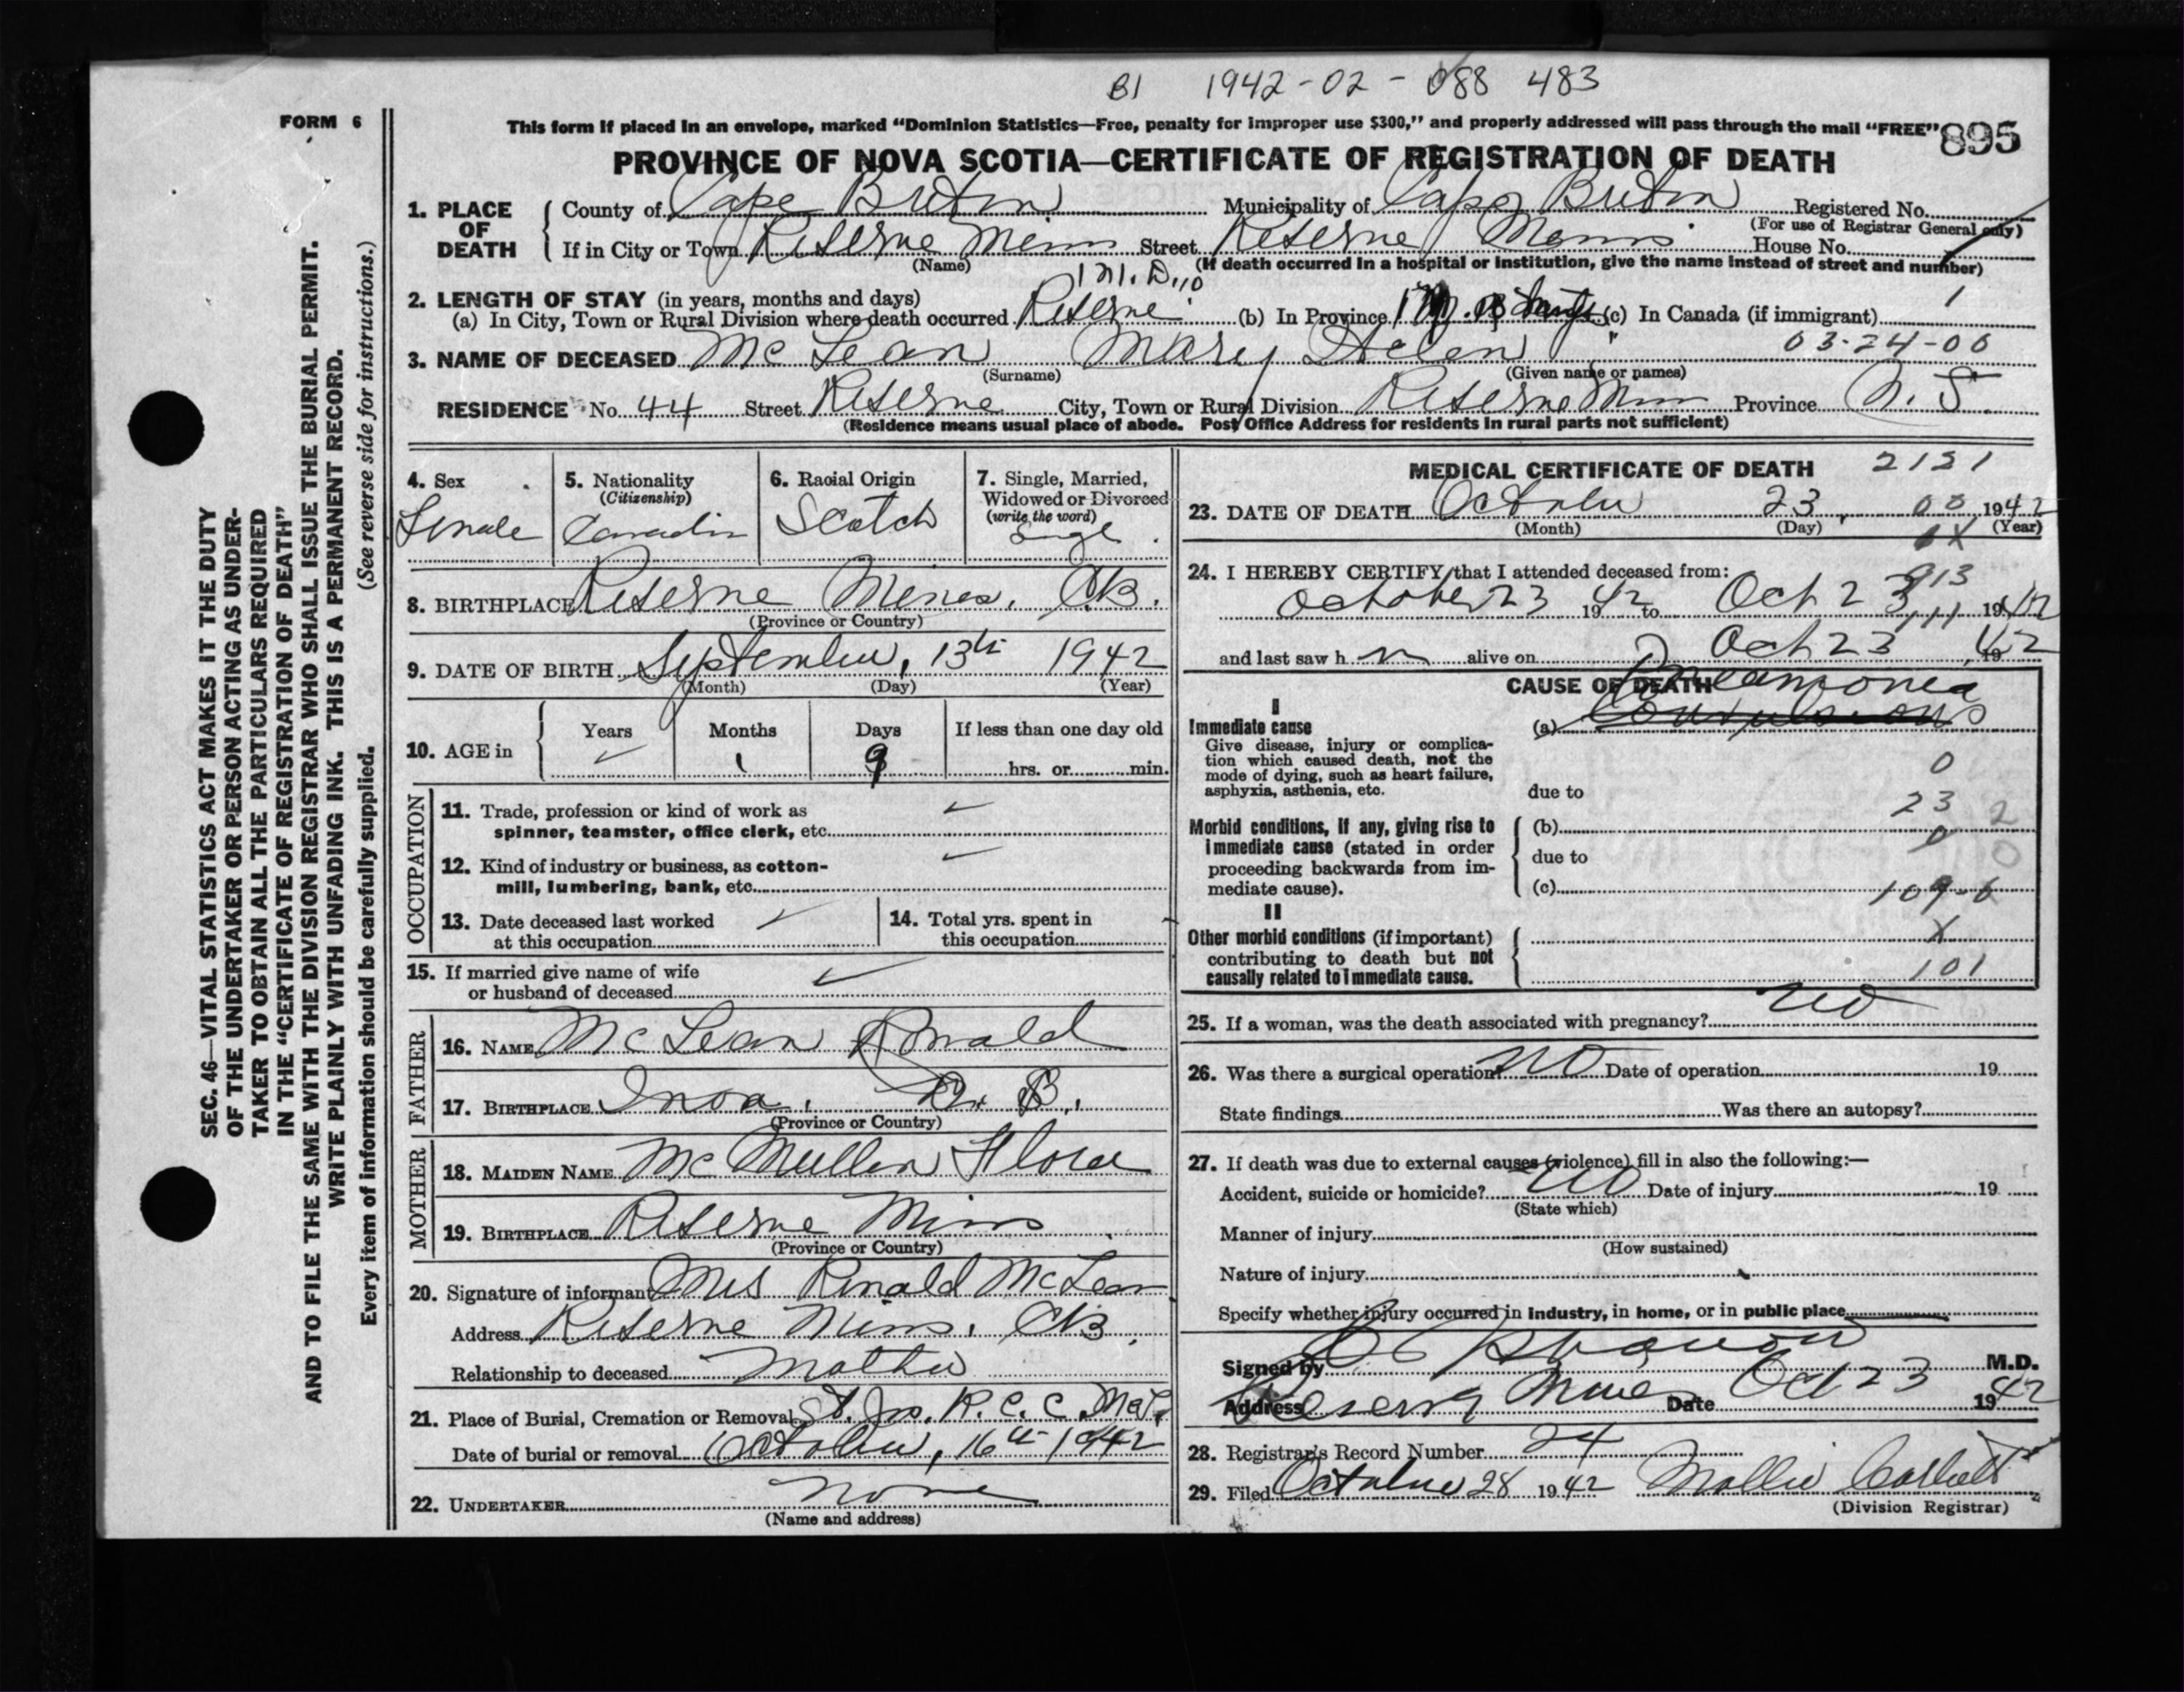 B1 1942-02-088 483
FORM 6
This form if placed in an envelope, marked “Dominion Statistics—Free, penalty for improper use $300,” and properly addressed will pass through the mail “FREE” 895
PROVINCE OF NOVA SCOTIA—CERTIFICATE OF REGISTRATION OF DEATH
1. PLACE OF DEATH
County of Cape Breton Municipality of Cape Breton Registered No.
(For use of Registrar General only)
If in City or Town Reserve Mines Street Reserve Mines House No.
(Name) (If death occurred in a hospital or institution, give the name instead of street and number)
2. LENGTH OF STAY (in years, months and days)
(a) In City, Town or Rural Division where death occurred Reserve (b) In Province (c) In Canada (if immigrant)
3. NAME OF DECEASED McLean Mary Helen 03-24-06
(Surname) (Given name or names)
RESIDENCE No. 44 Street Reserve City, Town or Rural Division Reserve Mines Province N.S.
(Residence means usual place of abode. Post Office Address for residents in rural parts not sufficient)
4. Sex
Female
5. Nationality
(Citizenship)
Canadian
6. Racial Origin
Scotch
7. Single, Married,
Widowed or Divorced
(write the word)
Single
8. BIRTHPLACE Reserve Mines, C.B.
(Province or Country)
9. DATE OF BIRTH September, 13th 1942
(Month) (Day) (Year)
10. AGE in
Years Months Days If less than one day old
1 9 hrs. or min.
OCCUPATION
11. Trade, profession or kind of work as
spinner, teamster, office clerk, etc.
12. Kind of industry or business, as cotton-
mill, lumbering, bank, etc.
13. Date deceased last worked
at this occupation
14. Total yrs. spent in
this occupation
15. If married give name of wife
or husband of deceased
FATHER
16. NAME McLean Ronald
17. BIRTHPLACE Inoa. B.
(Province or Country)
MOTHER
18. MAIDEN NAME McMullen Flora
19. BIRTHPLACE Reserve Mines
(Province or Country)
20. Signature of informant Mrs Ronald McLean
Address Reserve Mines, C.B.
Relationship to deceased Mother
21. Place of Burial, Cremation or Removal St. Jos. R.C.C.
Date of burial or removal October, 16th 1942
22. UNDERTAKER none
(Name and address)
MEDICAL CERTIFICATE OF DEATH 2121
23. DATE OF DEATH October 23, 1942
(Month) (Day) (Year)
24. I HEREBY CERTIFY that I attended deceased from:
October 23 1942 to Oct 23 1942
and last saw h alive on Oct 23 1942
CAUSE OF DEATH Pneamonea
I
Immediate cause
Give disease, injury or complica-
tion which caused death, not the
mode of dying, such as heart failure,
asphyxia, asthenia, etc.
(a) Convulsions
0
due to
23 2
Morbid conditions, if any, giving rise to
immediate cause (stated in order
proceeding backwards from im-
mediate cause).
(b)
0 0
due to
(c) 109-6
II
Other morbid conditions (if important)
contributing to death but not
causally related to immediate cause.
X
101
25. If a woman, was the death associated with pregnancy? no
26. Was there a surgical operation? no Date of operation 19
State findings Was there an autopsy?
27. If death was due to external causes (violence) fill in also the following:—
Accident, suicide or homicide? no Date of injury 19
(State which)
Manner of injury
(How sustained)
Nature of injury
Specify whether injury occurred in industry, in home, or in public place
Signed by M.D.
Address Reserve Mines Date Oct 23 1942
28. Registrar's Record Number 24
29. Filed October 28 1942 Mollie Corbett
(Division Registrar)
SEC. 46—VITAL STATISTICS ACT MAKES IT THE DUTY
OF THE UNDERTAKER OR PERSON ACTING AS UNDER-
TAKER TO OBTAIN ALL THE PARTICULARS REQUIRED
IN THE “CERTIFICATE OF REGISTRATION OF DEATH”
AND TO FILE THE SAME WITH THE DIVISION REGISTRAR WHO SHALL ISSUE THE BURIAL PERMIT.
WRITE PLAINLY WITH UNFADING INK. THIS IS A PERMANENT RECORD.
Every item of information should be carefully supplied. (See reverse side for instructions.)